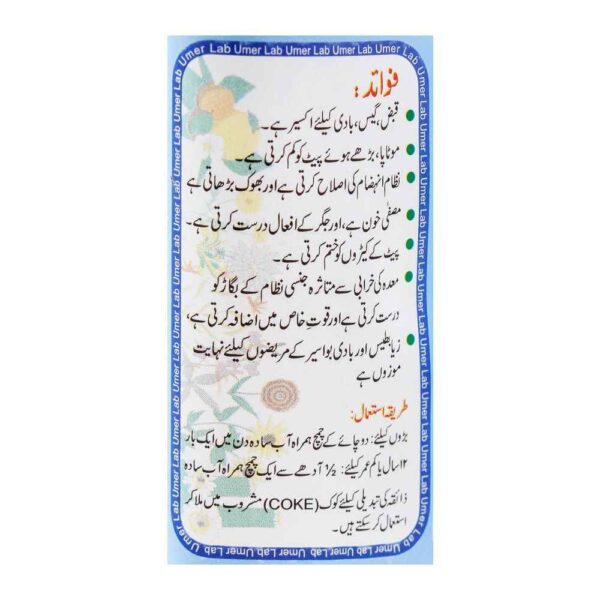 Umer Lab Umer Lab Umer Lab Umer Lab Umer Lab
فوائد:
قبض، گیس، بادی کیلئے اکسیر ہے۔
موٹاپا، بڑھے ہوئے پیٹ کو کم کرتی ہے۔
نظام انہضام کی اصلاح کرتی ہے اور بھوک بڑھاتی ہے
مصفٰی خون ہے، اور جگر کے افعال درست کرتی ہے۔
پیٹ کے کیڑوں کو ختم کرتی ہے۔
معدہ کی خرابی سے متاثرہ جنسی نظام کے بگاڑ کو
درست کرتی ہے اور قوتِ خاص میں اضافہ کرتی ہے،
زیابطیس اور بادی بواسیر کے مریضوں کیلئے نہایت
موزوں ہے
طریقہ استعمال:
بڑوں کیلئے: دو چائے کے چمچ ہمراہ آب سادہ دن میں ایک بار
۱۲ سال یا کم عمر کیلئے: ½ آدھے سے ایک چمچ ہمراہ آب سادہ
ذائقہ کی تبدیلی کیلئے کوک (COKE) مشروب میں ملا کر
استعمال کر سکتے ہیں۔